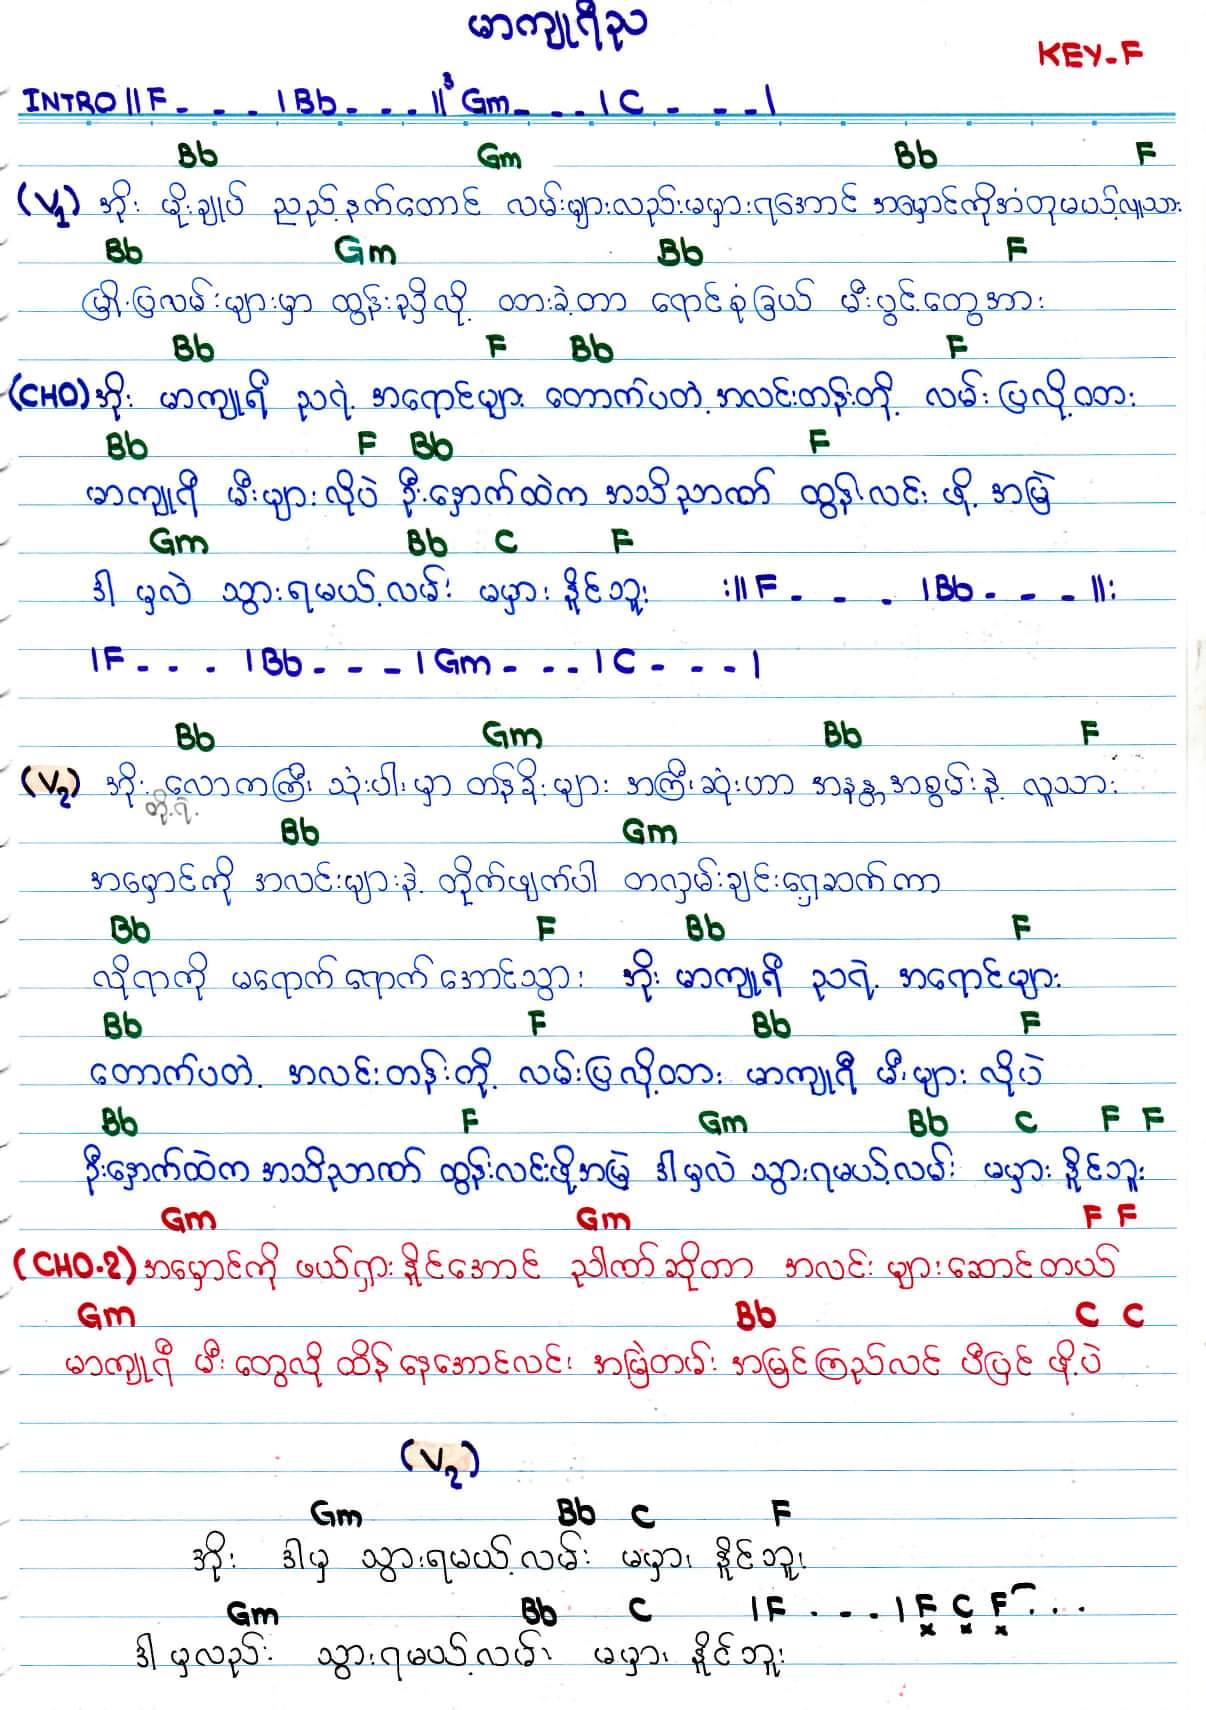 မာကျူရီည
KEY-F
INTRO || F - - - | Bb - - - ||³ Gm - - - | C - - - |
Bb Gm Bb F
(V1) အိုး မိုးချုပ် ညည့်နက်တောင် လမ်းများလည်းမမှားရအောင် အမှောင်ကိုအံတုမယ့်လူသား
Bb Gm Bb F
မြို့ပြလမ်းများမှာ ထွန်းညှိလို့ ထားခဲ့တာ ရောင်စုံခြယ် မီးပွင့်တွေအား
Bb F Bb F
(CHO) အိုး မာကျူရီ ညရဲ့ အရောင်များ တောက်ပတဲ့ အလင်းတန်းတို့ လမ်းပြလို့ထား
Bb F Bb F
မာကျူရီ မီးများလိုပဲ ဦးနှောက်ထဲက အသိဉာဏ် ထွန်းလင်းဖို့ အမြဲ
Gm Bb C F
ဒါမှလဲ သွားရမယ့်လမ်း မမှားနိူင်ဘူး :|| F - - - | Bb - - - ||:
| F - - - | Bb - - - | Gm - - - | C - - - |
Bb Gm Bb F
(V2) အိုး လောကကြီး သုံးပါးမှာ တန်ခိုးများ အကြီးဆုံးဟာ အနန္တ အစွမ်းနဲ့ လူသား
တို့ရဲ့
Bb Gm
အမှောင်ကို အလင်းများနဲ့ တိုက်ဖျက်ပါ တလှမ်းချင်းရှေ့ဆက်ကာ
Bb F Bb F
လိုရာကို မရောက် ရောက်အောင်သွား အိုး မာကျူရီ ညရဲ့ အရောင်များ
Bb F Bb F
တောက်ပတဲ့ အလင်းတန်းတို့ လမ်းပြလို့ထား မာကျူရီ မီးများ လိုပဲ
Bb F Gm Bb C F F
ဦးနှောက်ထဲက အသိဉာဏ် ထွန်းလင်းဖို့အမြဲ ဒါမှလဲ သွားရမယ့်လမ်း မမှားနိူင်ဘူး
Gm Gm F F
(CHO.2) အမှောင်ကို ဖယ်ရှားနိူင်အောင် ဉာဏ်ဆိုတာ အလင်းများဆောင်တယ်
Gm Bb C C
မာကျူရီ မီးတွေလို ထိန်နေအောင်လင်း အမြဲတမ်း အမြင်ကြည်လင် ပီပြင်ဖို့ပဲ
(V2)
Gm Bb C F
အိုး ဒါမှ သွားရမယ့်လမ်း မမှားနိူင်ဘူး
Gm Bb C | F . - - | F C F . . .
x x x
ဒါမှလည်း သွားရမယ့်လမ်း မမှားနိူင်ဘူး